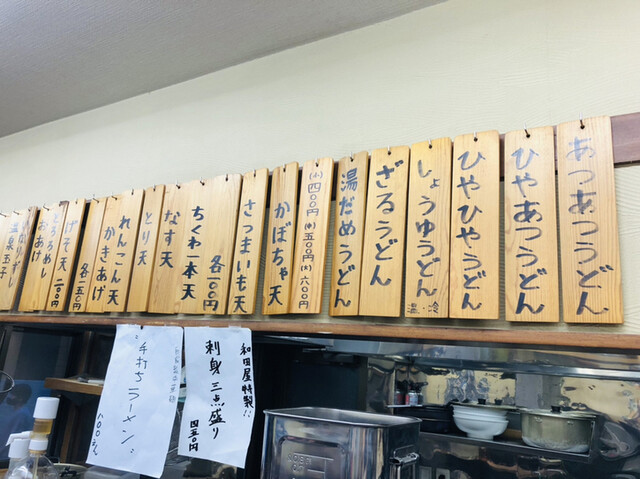 あつあつうどん
ひやあつうどん
ひやひやうどん
しょうゆうどん
温・冷
ざるうどん
湯だめうどん
(小)四〇〇円 (中)五〇〇円 (大)六〇〇円
かぼちゃ天
さつまいも天
各一〇〇円
ちくわ一本天
なす天
とり天
れんこん天
かきあげ
各一五〇
げそ天 二〇〇
とろろめし
おあげ
いなりずし
温泉玉子
和田屋特製!!
刺身 三点盛り
四五〇円
手打ちラーメン